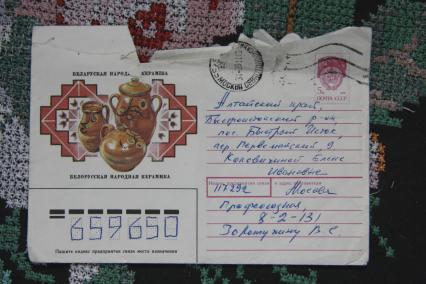 БЕЛАРУСКАЯ НАРОДНАЯ КЕРАМІКА
МОСКВА
5к
ПОЧТА СССР
Алтайский край,
Быстроистокский р-он
пос. Быстрый Исток,
пер. Первомайский, 9
Коловихиной Елене
Ивановне
БЕЛОРУССКАЯ НАРОДНАЯ КЕРАМИКА
Индекс предприятия связи и адрес отправителя
117292 Москва
Профсоюзная,
8-2-131
Золотухину В.С.
659650
Пишите индекс предприятия связи места назначения